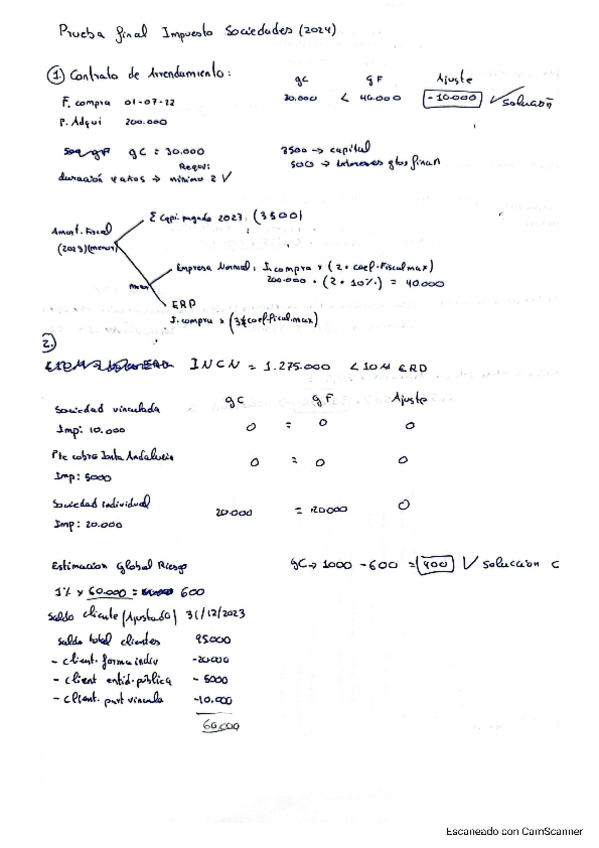 Prueba final Impuesto Sociedades (2024)
① Contrato de Arrendamiento:
gc gF Ajuste
F. compra 01-07-22 30.000 < 40.000 -10.000 ✓ solución
P. Adqui 200.000
gc = 30.000 3500 → capital
Requi: 500 → intereses gtos finan
duración 4 años → mínimo 2 ✓
Σ Capi. pagado 2023. (3500)
Amort. Fiscal
(2023) (menor)
Empresa Normal: I. compra x (2 · coef. Fiscal max)
200.000 · (2 · 10%) = 40.000
ERD
I. compra x (3 coef. fiscal. max)
2.
INCN = 1.275.000 < 10M ERD
gc gF Ajuste
Sociedad vinculada
Imp: 10.000 0 = 0 0
Pte cobro Junta Andalucía 0 = 0 0
Imp: 5000
Sociedad individual 20.000 = 20000 0
Imp: 20.000
Estimacion Global Riesgo gc → 1000 - 600 = 400 ✓ solucion c
1% x 60.000 = 600
Saldo cliente (Ajustado) 31/12/2023
Saldo total clientes 95000
- client. forma indiv -20000
- client entid. pública - 5000
- client. part vincula -10.000
60.000
Escaneado con CamScanner